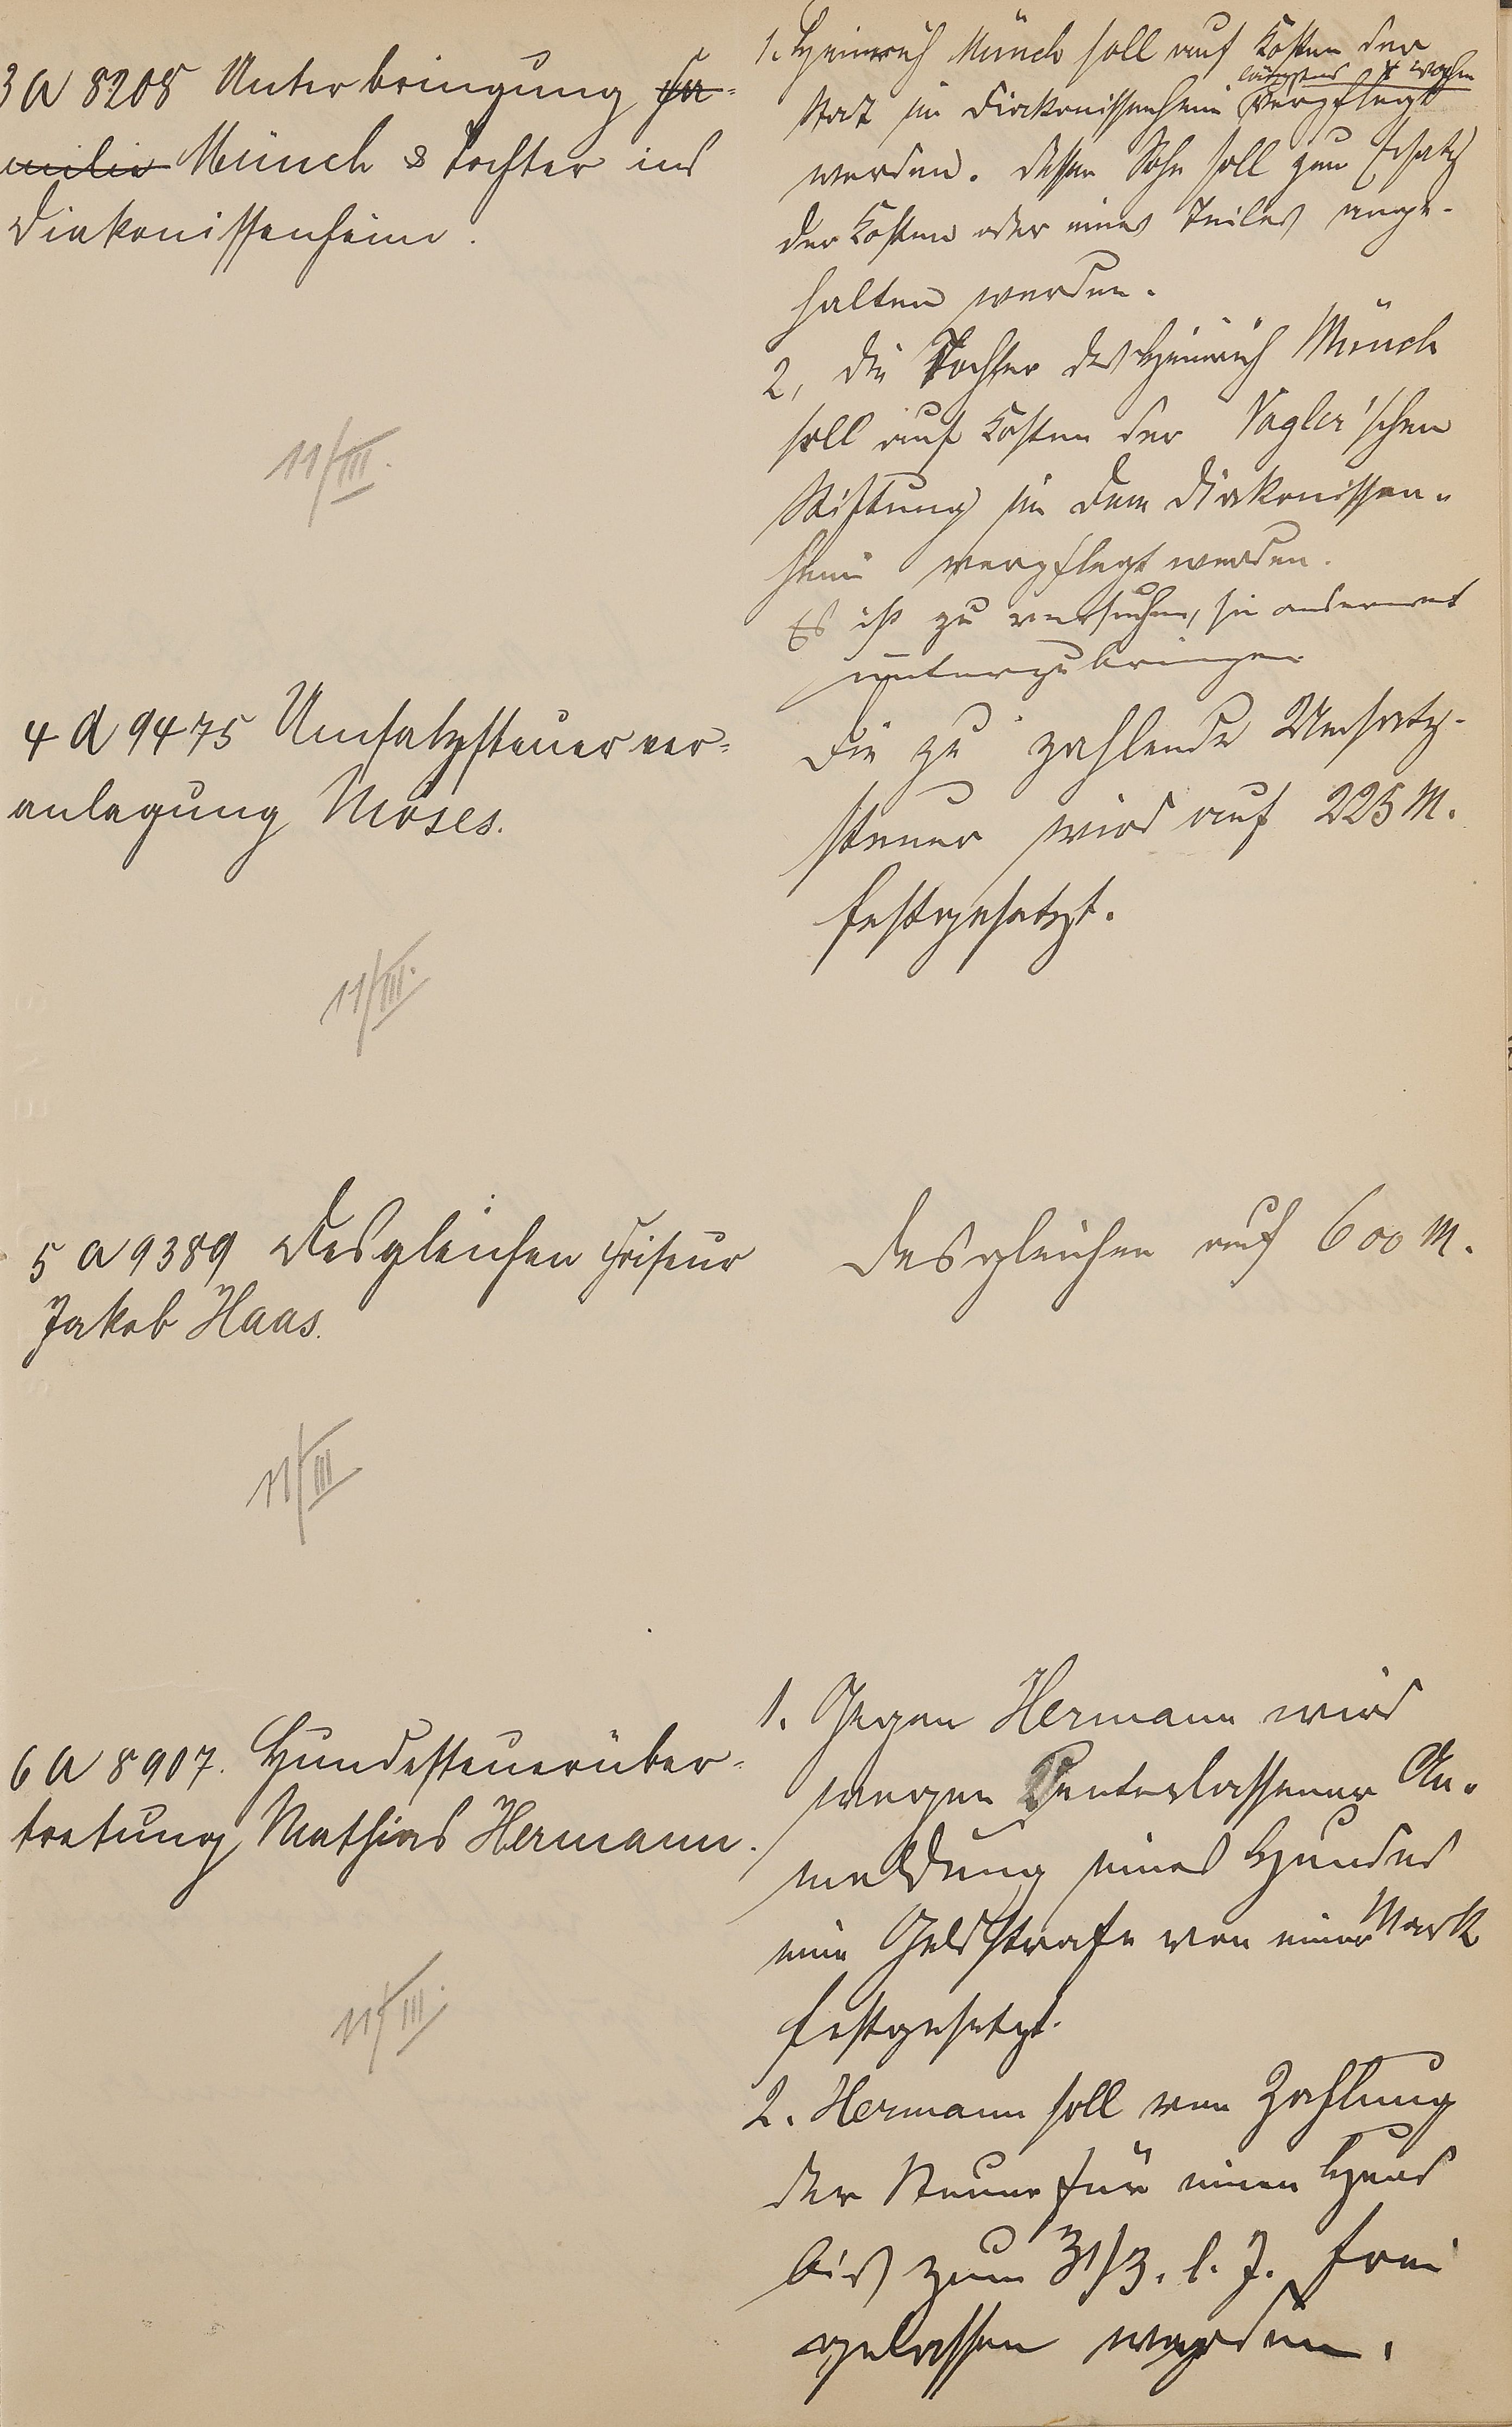 3 A 8208 Unterbringung Fa-
milie Münch & Tochter ins
Diakonissenheim.
1. Heinrich Münch soll auf Kosten der
längstens 4 Wochen
Stadt im Diakonissenheim verpflegt
werden. Dessen Sohn soll zum Ersatz
der Kosten oder eines Teiles ange-
halten werden.
2, die Tochter des Heinrich Münch
soll auf Kosten der Vogler'schen
Stiftung in dem Diakonissen-
heim verpflegt werden.
Es ist zu versuchen, sie anderwärts
unterzubringen
11/III.
4 A 9475 Umsatzsteuerver-
anlagung Moses.
Die zu zahlende Umsatz-
steuer wird auf 225 M.
festgesetzt.
11/III.
5 A 9389 Desgleichen Friseur
Jakob Haas.
Desgleichen auf 600 M.
11/III
6 A 8907. Hundesteuerüber-
tretung Mathias Hermann.
1. Gegen Hermann wird
wegen unterlassener An-
meldung eines Hundes
eine Geldstrafe von einer Mark
festgesetzt.
2. Hermann soll von Zahlung
der Steuer für einen Hund
bis zum 31/3. l. J. frei
gelassen werden.
11/III.